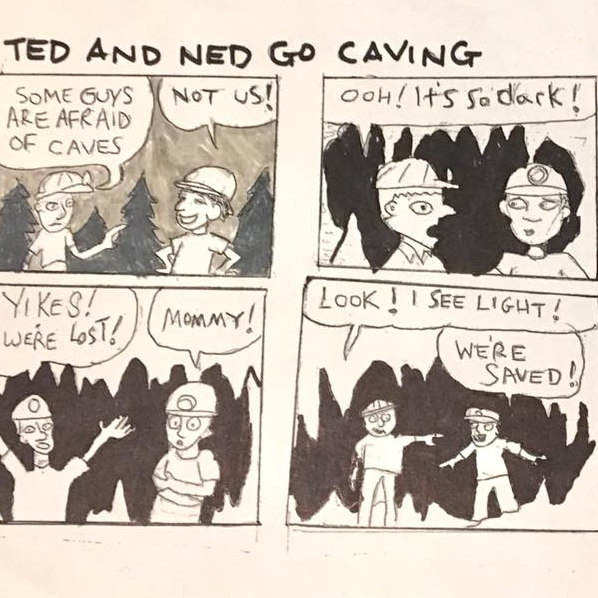 TED AND NED GO CAVING
SOME GUYS
ARE AFRAID
OF CAVES
NOT US!
OOH! It's so dark!
YIKES!
WE'RE LOST!
MOMMY!
LOOK! I SEE LIGHT!
WE'RE
SAVED!